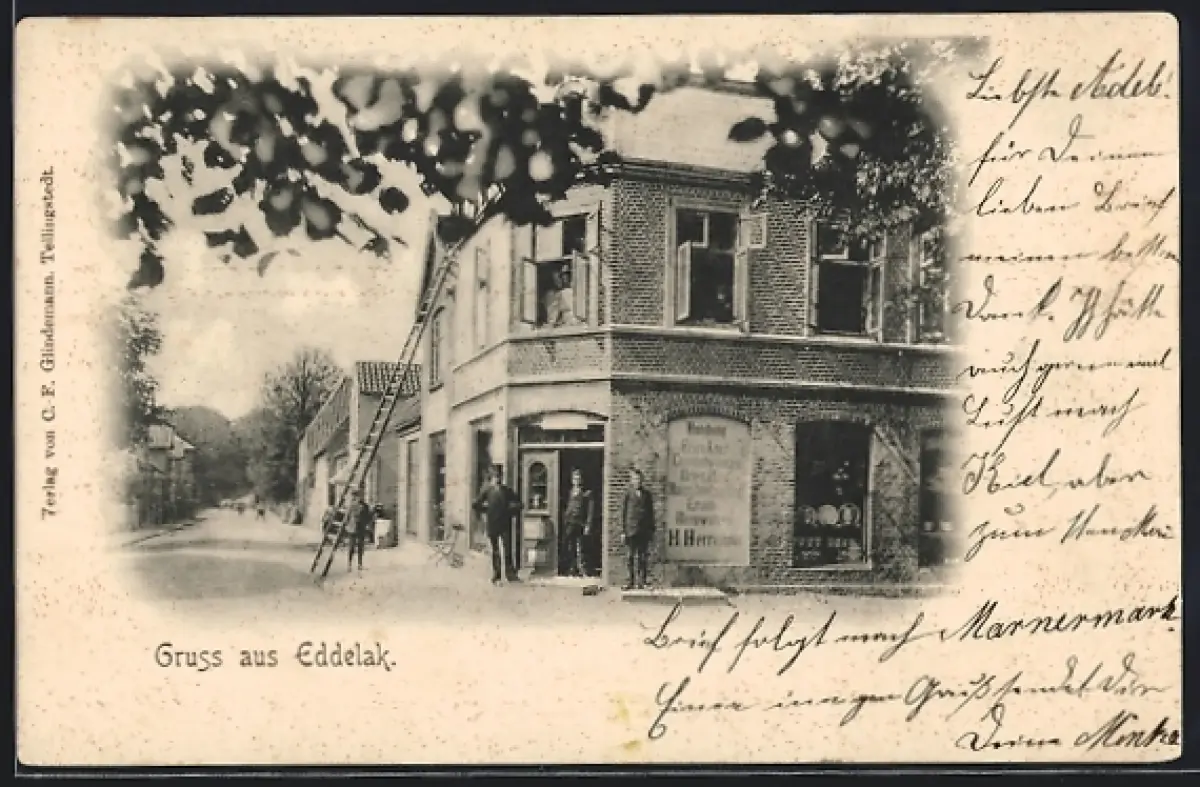 Verlag von C. F. Glindemann, Tellingstedt.
Gruss aus Eddelak.
Handlung
H. Herr
Liebste Adele!
für Deinen
lieben Brief
meinen besten
Dank. Ich hätte
auch gerne mal
Lust nach
Kiel, aber
zum
Brief folgt nach Marnermarkt.
Einen innigen Gruß sendet Dir
Deine